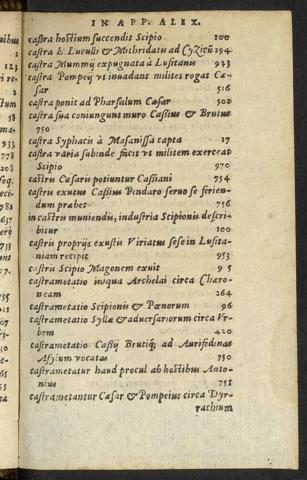 IN APP. ALEX.
castra hostium succendit Scipio 100
castra E. Luculli & Mithridatis ad Cyzicū 294
castra Mummij expugnata à Lusitanis 943
castra Pompeij vt inuadant milites rogat Cæ-
sar 516
castra ponit ad Pharsalum Cæsar 502
castra sua coniungunt muro Cassius & Brutus
750
castra Syphacis à Masanissa capta 17
castra varia subinde fecit vt militem exerceat
Scipio 970
castris Cæsaris potiuntur Cassiani 754
castris exutus Cassius Pindaro seruo se ferien-
dum præbet 756
in castris muniendis, industria Scipionis descri-
bitur 100
castris proprijs exustis Viriatus sese in Lusita-
niam recipit 953
castris Scipio Magonem exuit 95
castrametatio iniqua Archelai circa Chæro-
neam 264
castrametatio Scipionis & Pœnorum 96
castrametatio Syllæ & aduersariorum circa Vr-
bem 420
castrametatio Cassij Brutiq; ad Aurifodinas
Asylum vocatas 750
castrametatur haud procul ab hostibus Anto-
nius 751
castrametantur Cæsar & Pompeius circa Dyr-
rachium